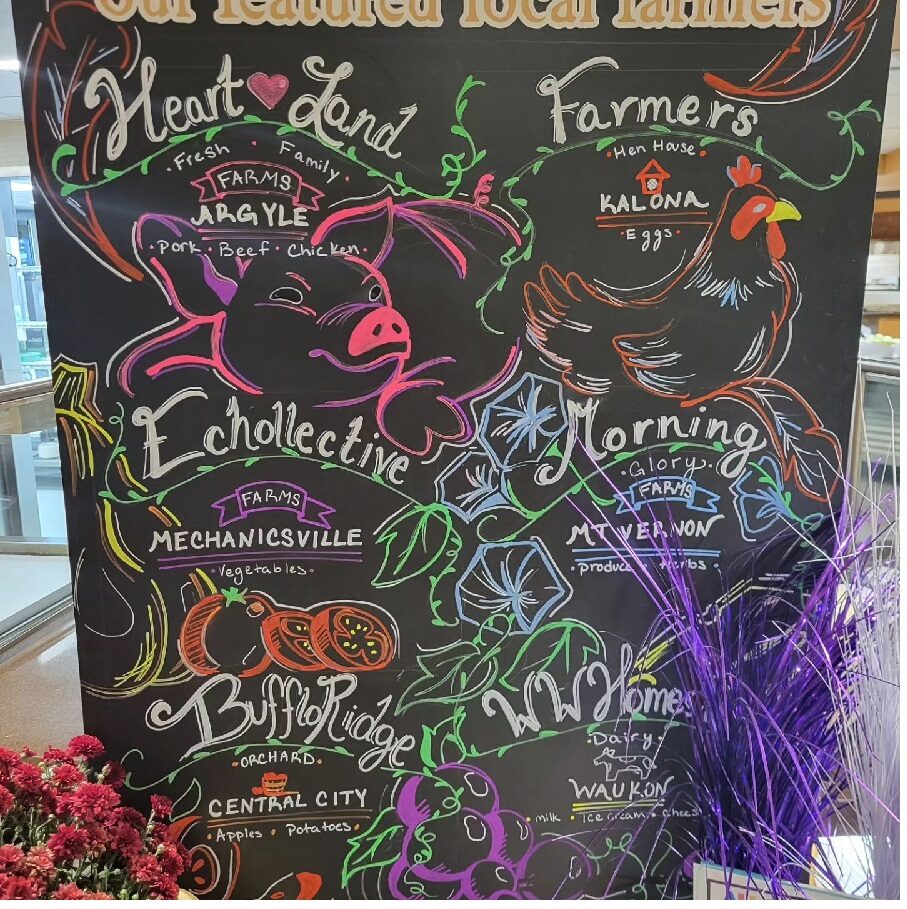 Our featured local farmers
Heart Land
Fresh · Family
FARMS
ARGYLE
· Pork · Beef · Chicken ·
Farmers
· Hen House ·
KALONA
· Eggs ·
Echollective
FARMS
MECHANICSVILLE
· Vegetables ·
Morning
· Glory ·
FARMS
MT VERNON
· produce · Herbs ·
BuffloRidge
· ORCHARD ·
CENTRAL CITY
· Apples · Potatoes ·
WW Homes
· Dairy ·
WAUKON
· milk · Ice cream · Chees